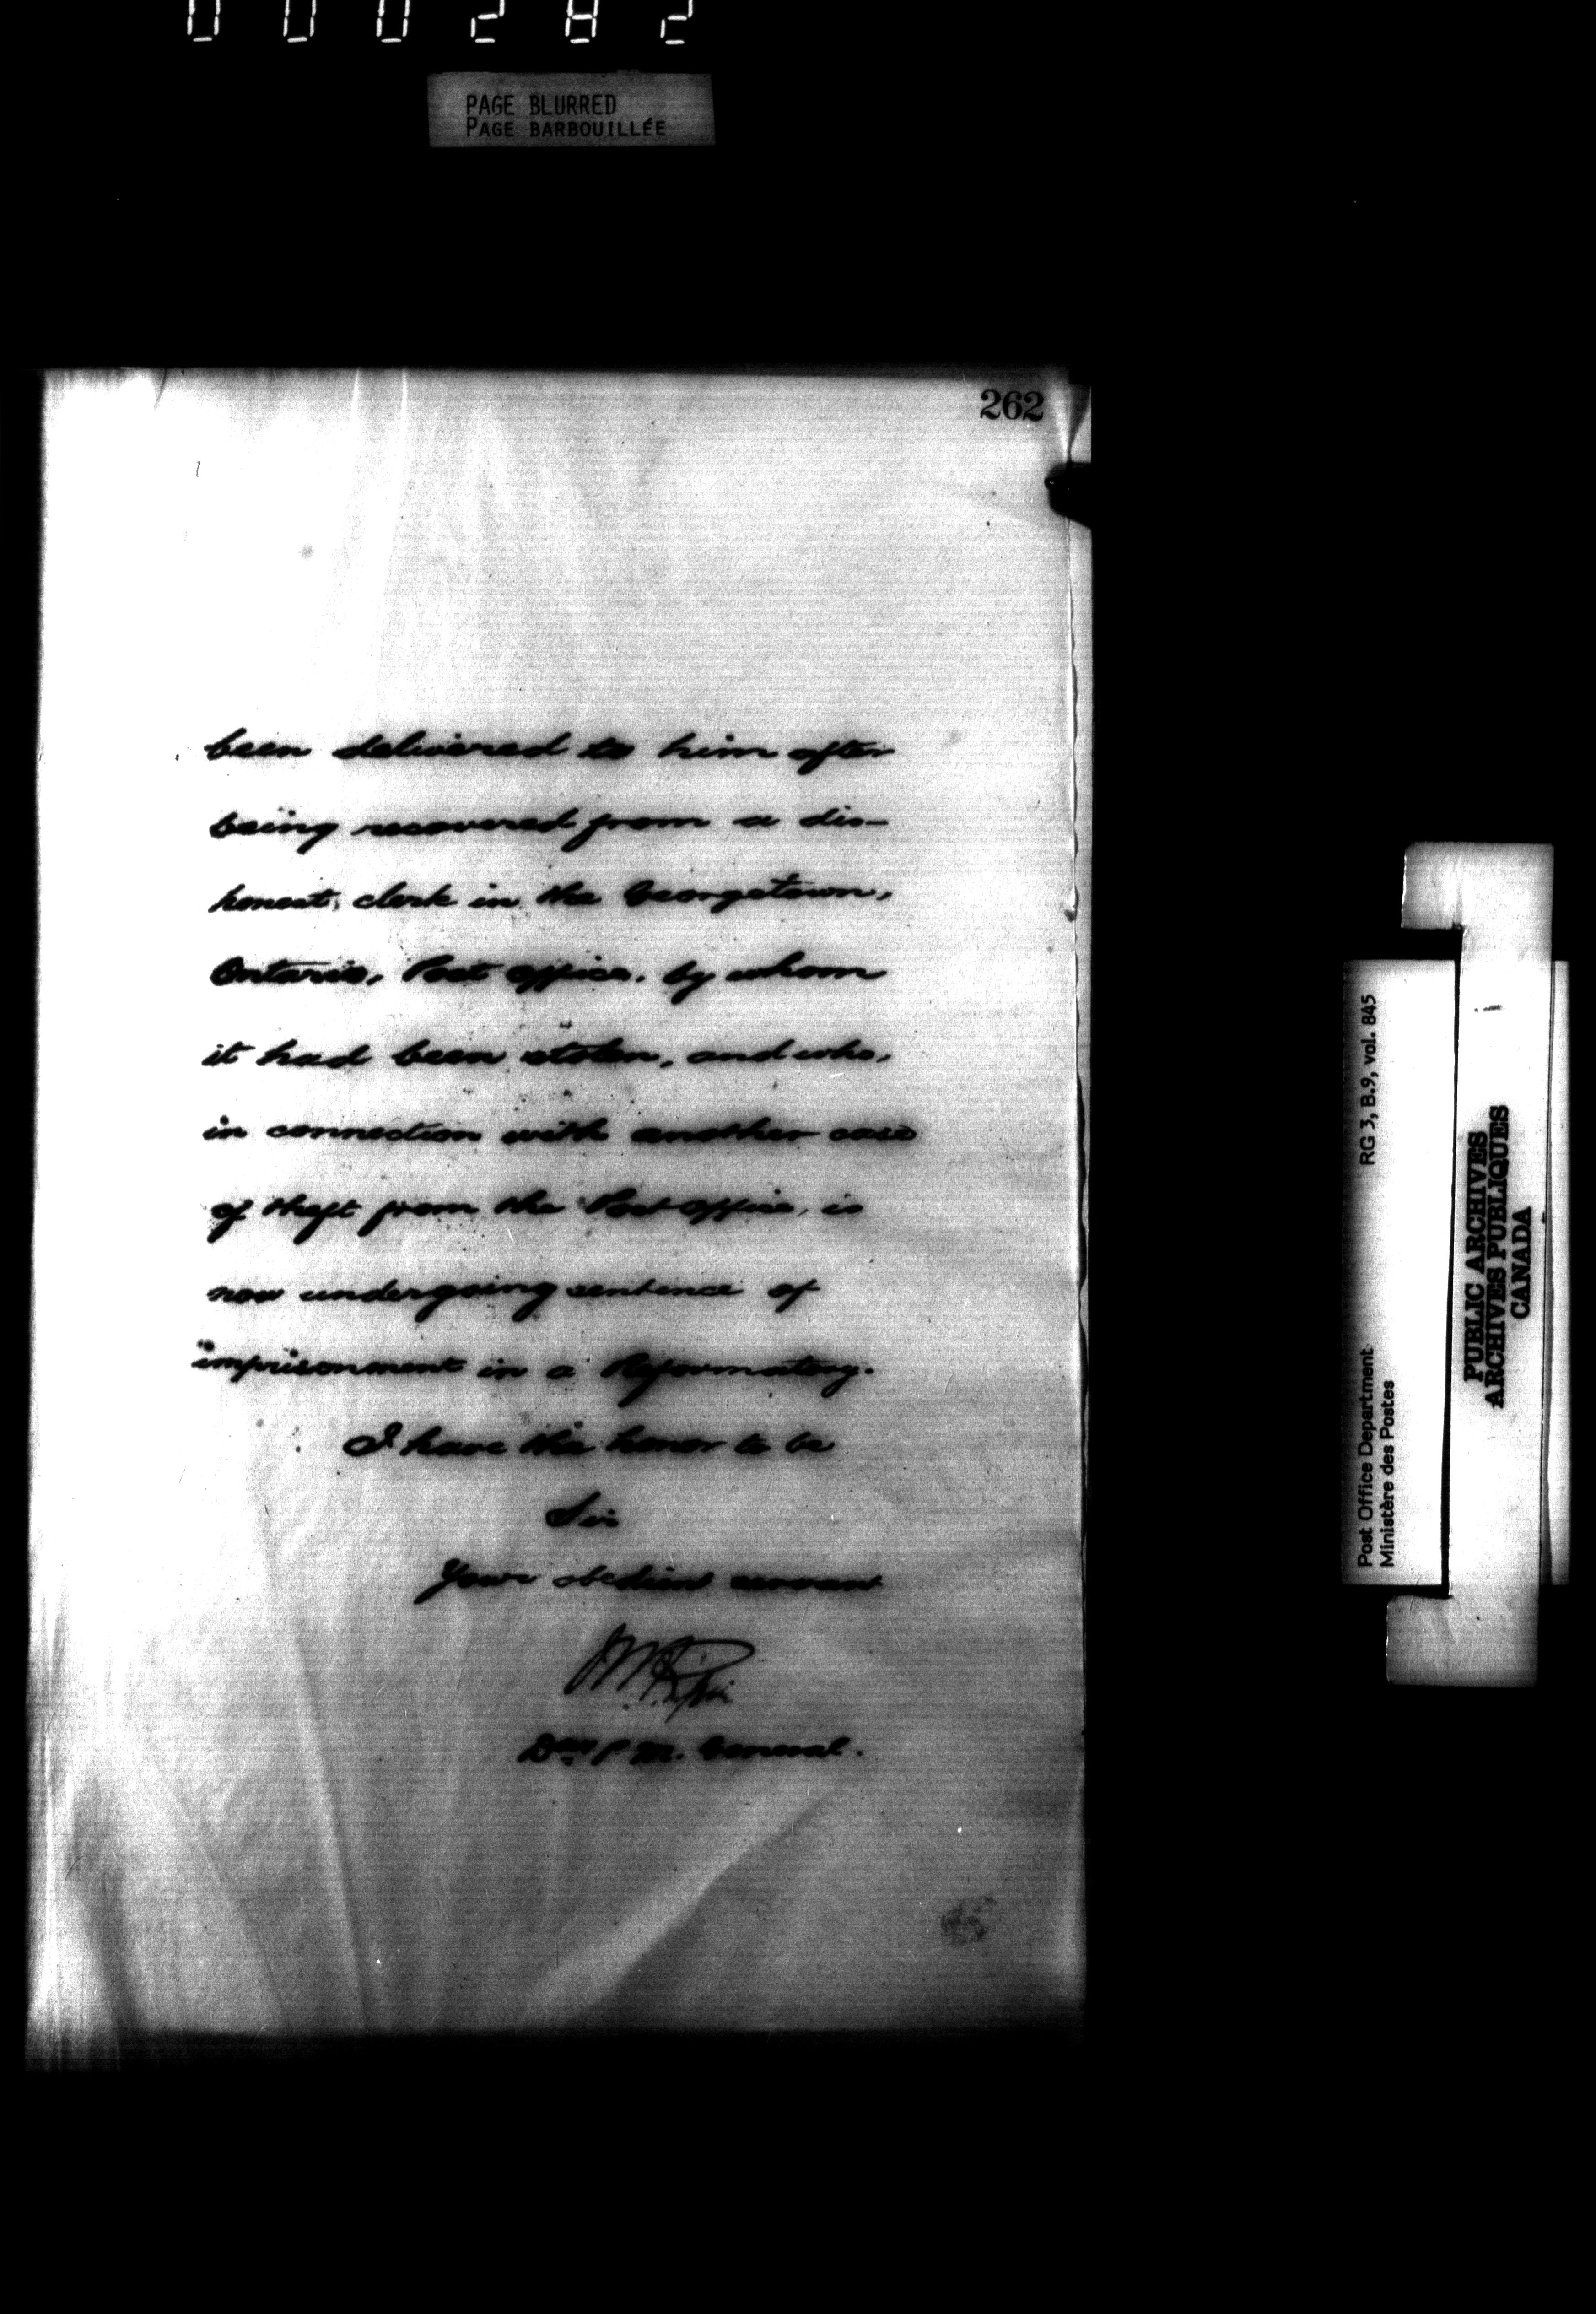 000282
PAGE BLURRED
PAGE BARBOUILLÉE
262
been delivered to him after
being recovered from a dis-
honest, clerk in the Georgetown,
Ontario, Post Office, by whom
it had been stolen, and who,
in connection with another case
of theft from the Post Office, is
now undergoing sentence of
imprisonment in a Reformatory.
I have the honor to be
Sir
Your obedient servant
P. M. General.
RG 3, B.9, vol. 845
Post Office Department
Ministère des Postes
PUBLIC ARCHIVES
ARCHIVES PUBLIQUES
CANADA